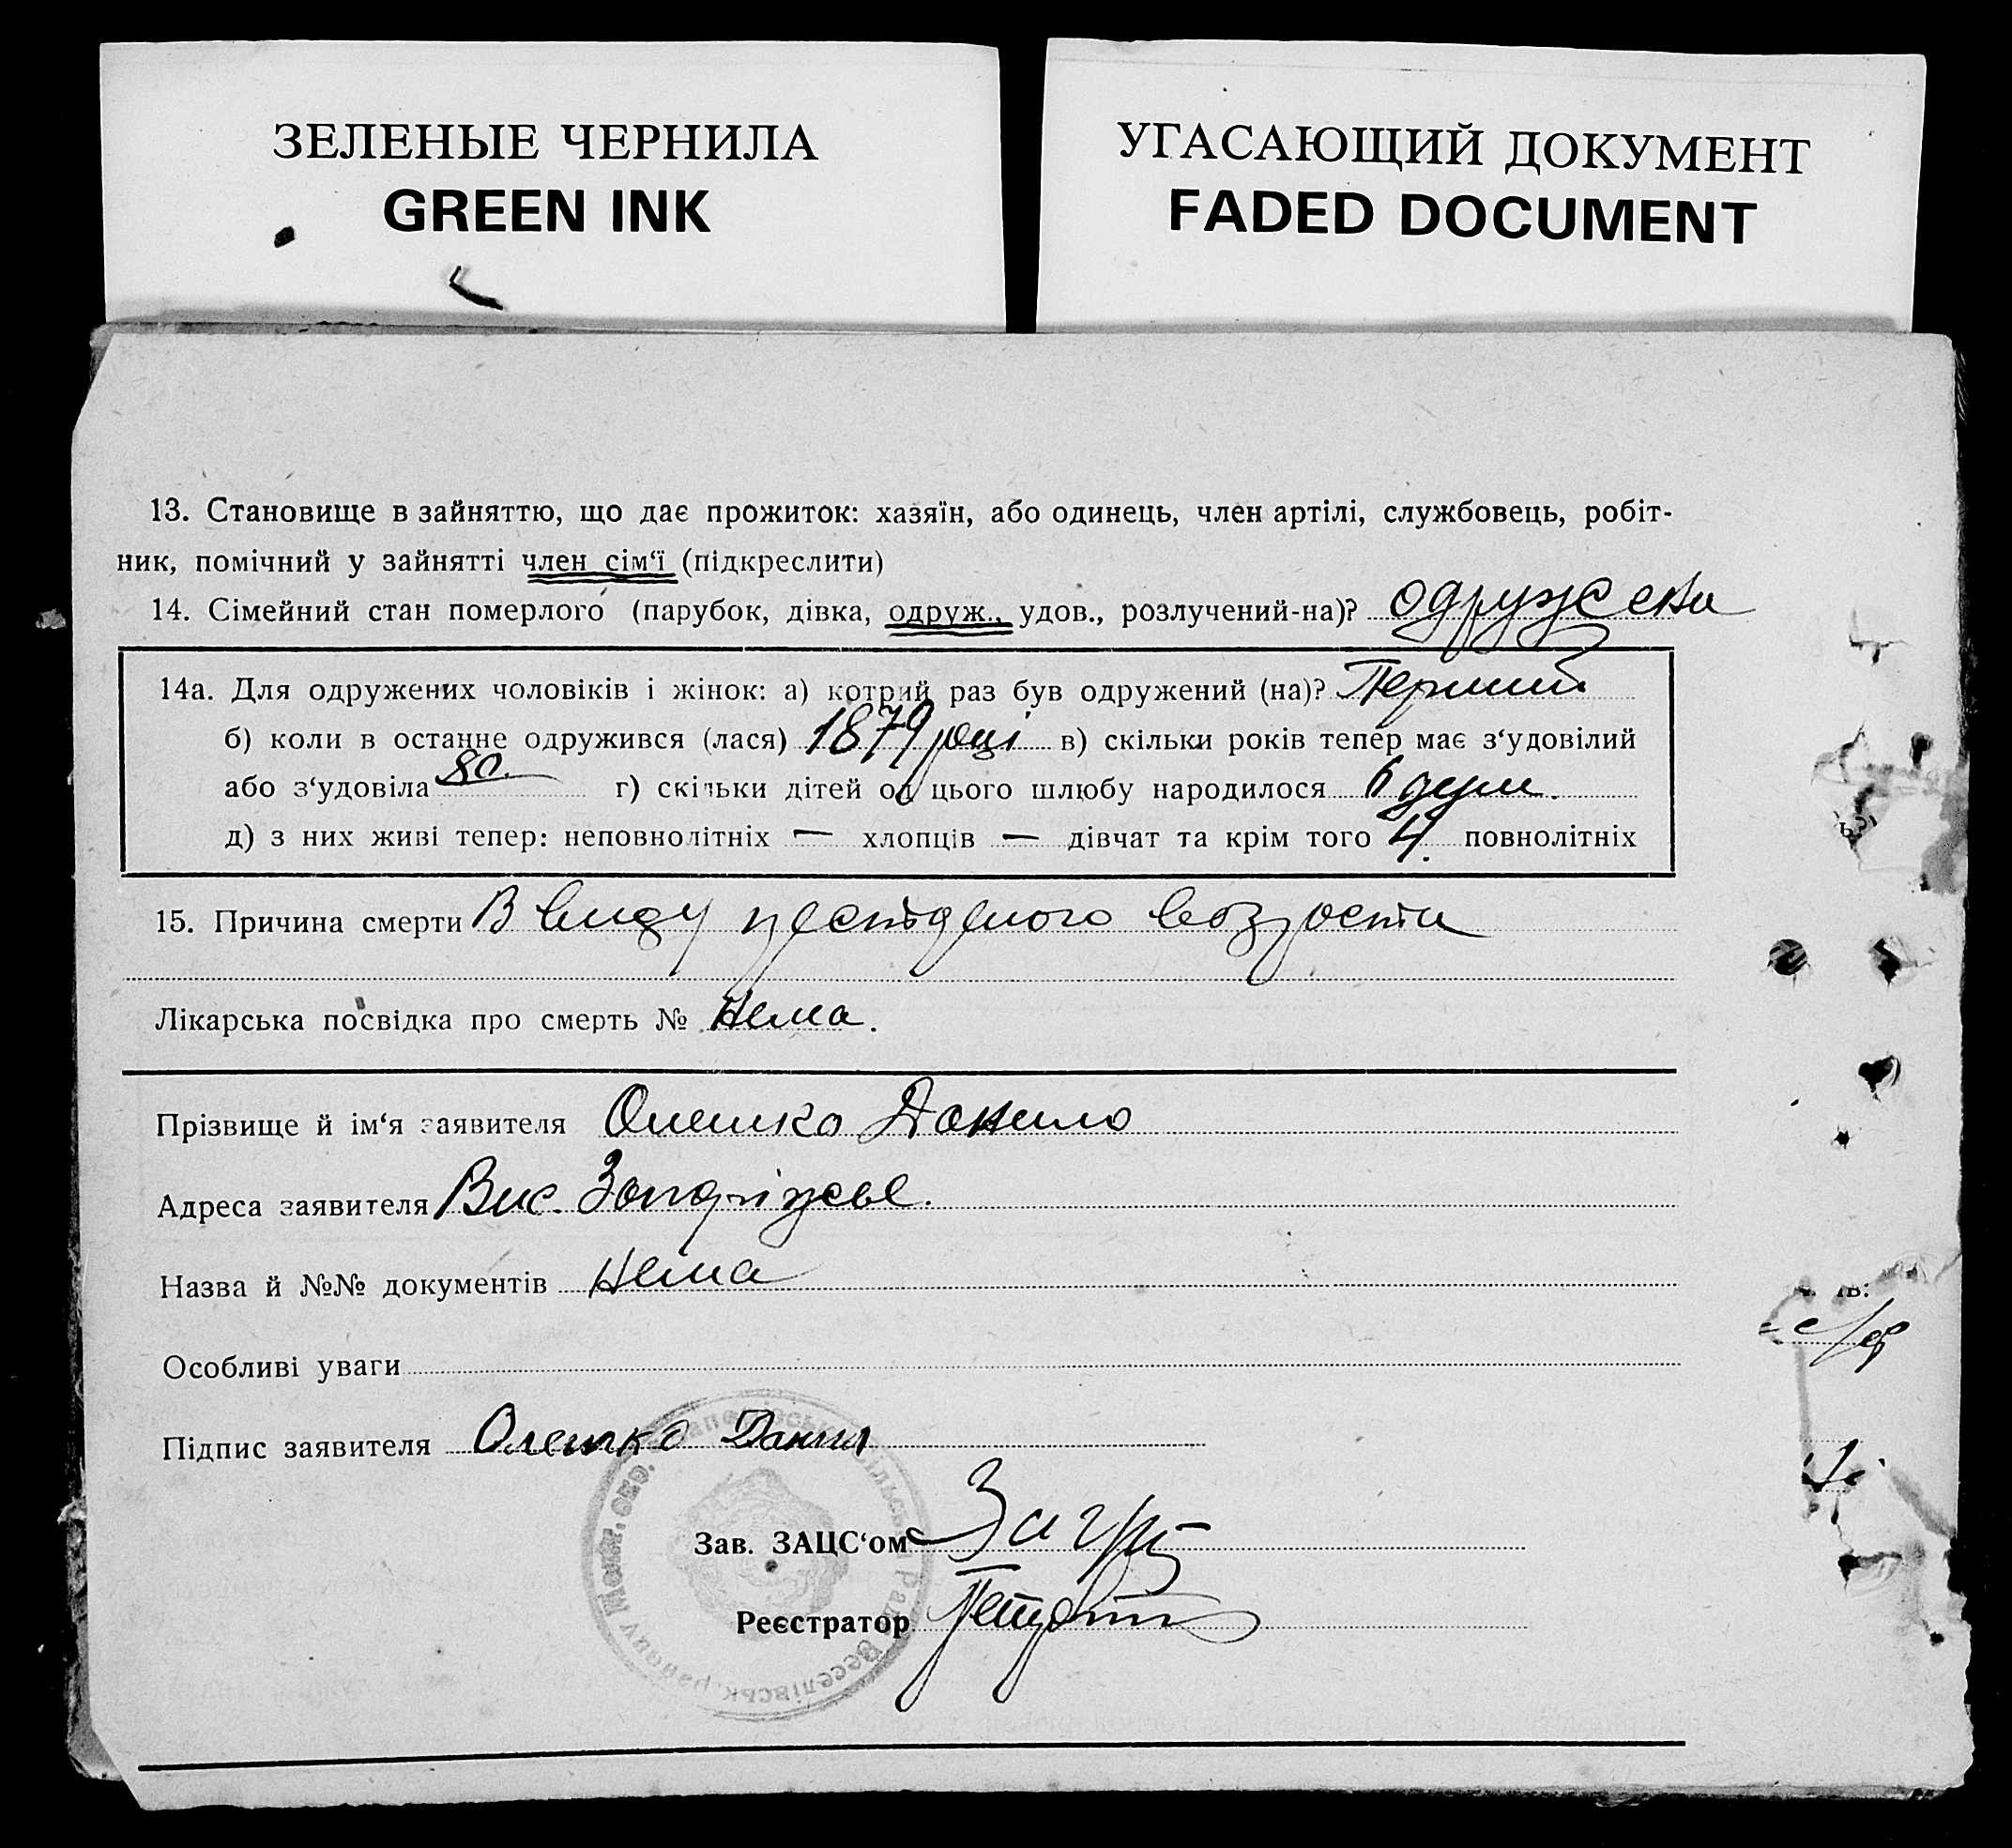 ЗЕЛЕНЫЕ ЧЕРНИЛА
GREEN INK
УГАСАЮЩИЙ ДОКУМЕНТ
FADED DOCUMENT
13. Становище в зайняттю, що дає прожиток: хазяїн, або одинець, член артілі, службовець, робіт-
ник, помічний у зайнятті член сім‘ї (підкреслити)
14. Сімейний стан померлого (парубок, дівка, одруж., удов., розлучений-на)? одружена
14а. Для одружених чоловіків і жінок: а) котрий раз був одружений (на)? Перший
б) коли в останне одружився (лася) 1879 році в) скільки років тепер має з‘удовілий
або з‘удовіла 80. г) скільки дітей од цього шлюбу народилося 6 душ.
д) з них живі тепер: неповнолітніх — хлопців — дівчат та крім того 4. повнолітніх
15. Причина смерти В виду возроста
Лікарська посвідка про смерть № Нема.
Прізвище й ім‘я заявителя Олешко Данило
Адреса заявителя Вис.
Назва й №№ документів Нема
Особливі уваги
Підпис заявителя Олешко Данил
Зав. ЗАЦС‘ом
Реєстратор